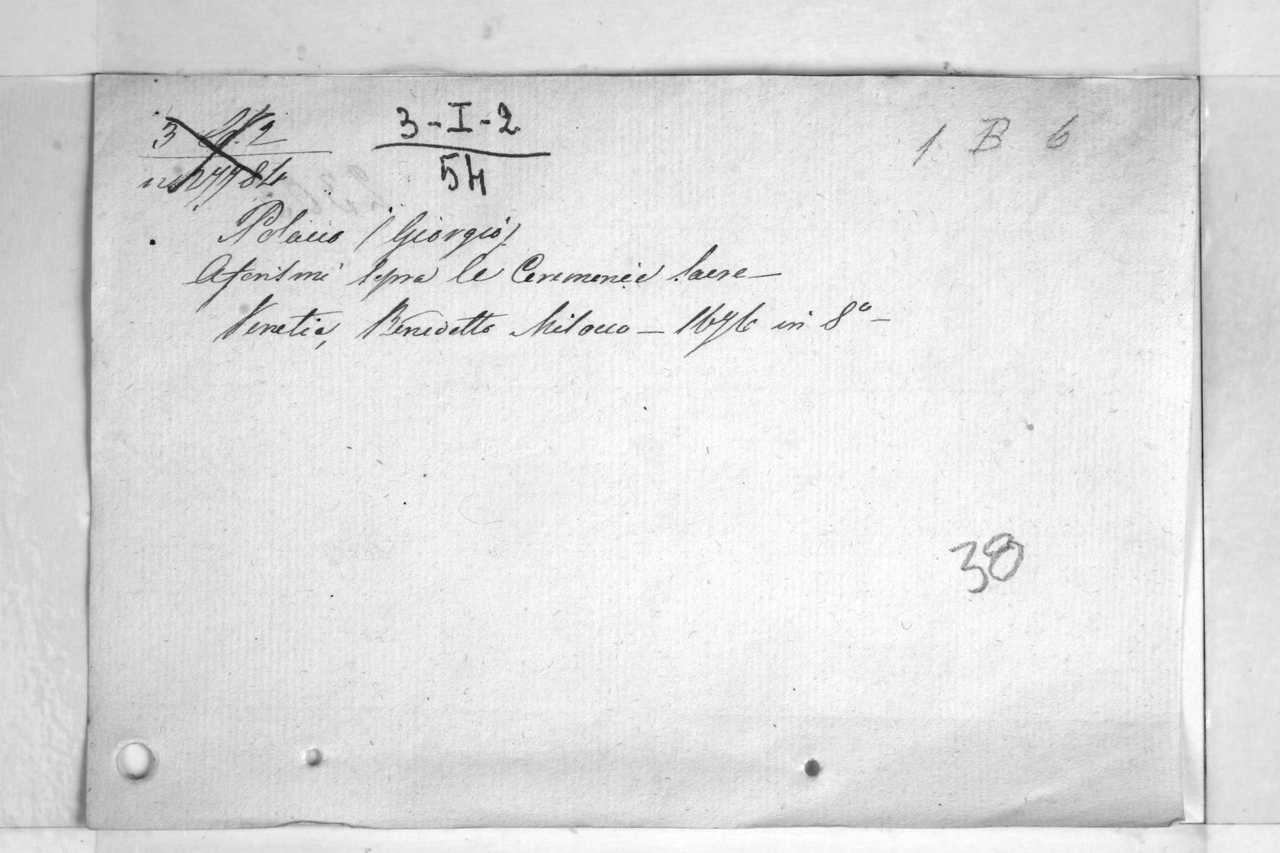 3-I-2
54
1 B 6
Polacco (Giorgio)
Aforismi sopra le Ceremonie Sacre —
Venetia, Benedetto Milocco — 1676 in 8º —
38